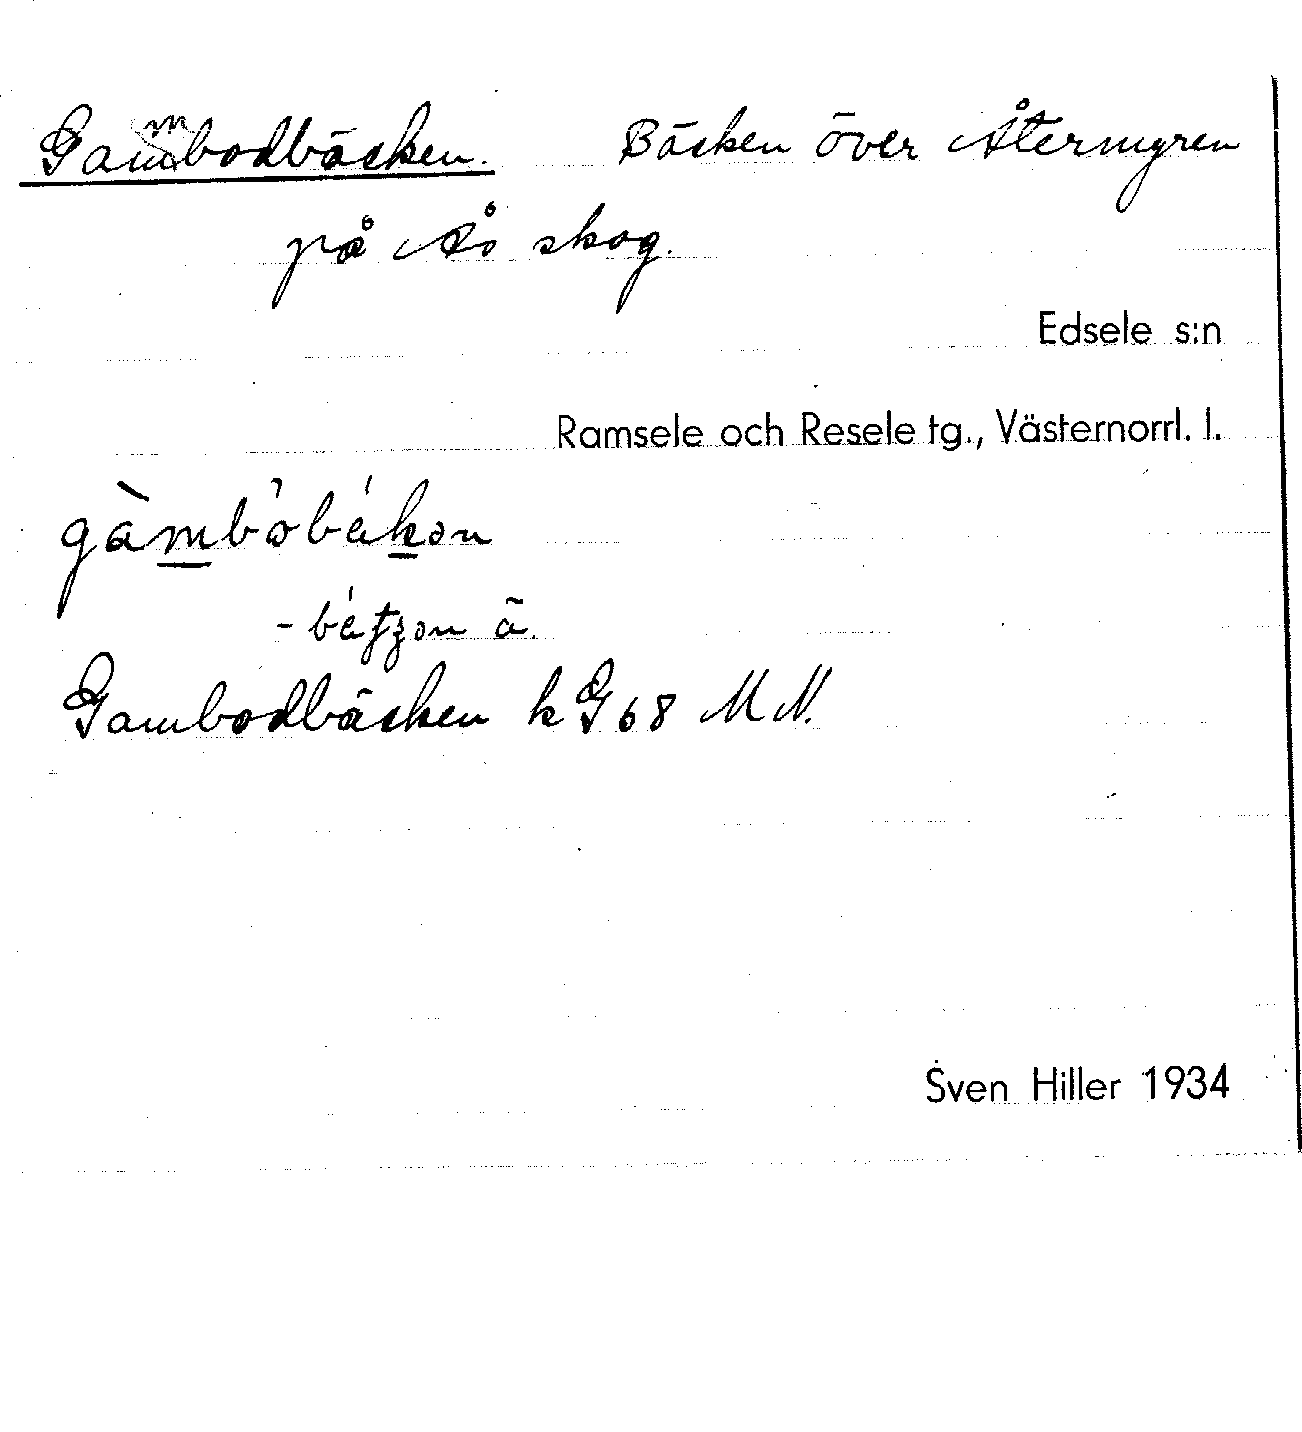 Gambodbäcken. Bäcken över Återmyren
på Ås skog.
Edsele s:n
Ramsele och Resele tg., Västernorrl. l.
Gambodbäcken k G 68 M N.
Sven Hiller 1934